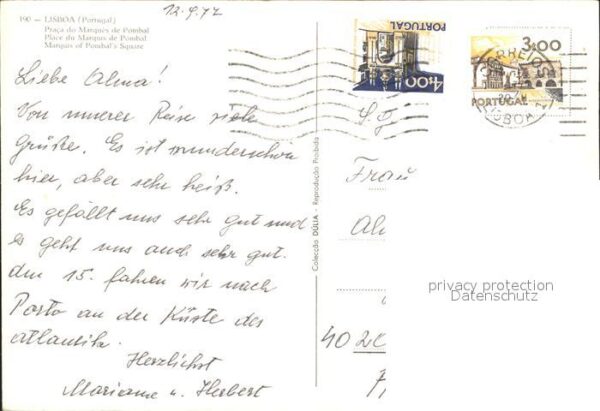 12.9.77
190 — LISBOA (Portugal)
Praça do Marquês de Pombal
Place du Marquis de Pombal
Marquis of Pombal's Square
Liebe Alma!
Von unserer Reise viele
Grüße. Es ist wunderschön
hier, aber sehr heiß.
Es gefällt uns sehr gut und
es geht uns auch sehr gut.
den 15. fahren wir nach
Porto an der Küste des
Atlantik.
Herzlichst
Mariame u. Herbert
Colecção DÚLIA - Reprodução Proibida
PORTUGAL
4$00
3$00
PORTUGAL
CORREIOS
LISBOA
Frau
Al
privacy protection
Datenschutz
40